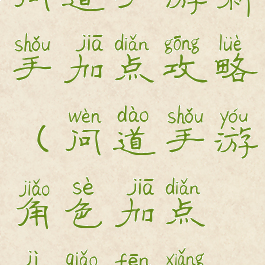 shǒu jiā diǎn gōng lüè
手加点攻略
wèn dào shǒu yóu
（问道手游
jiǎo sè jiā diǎn
角色加点
jì qiǎo fēn xiǎng